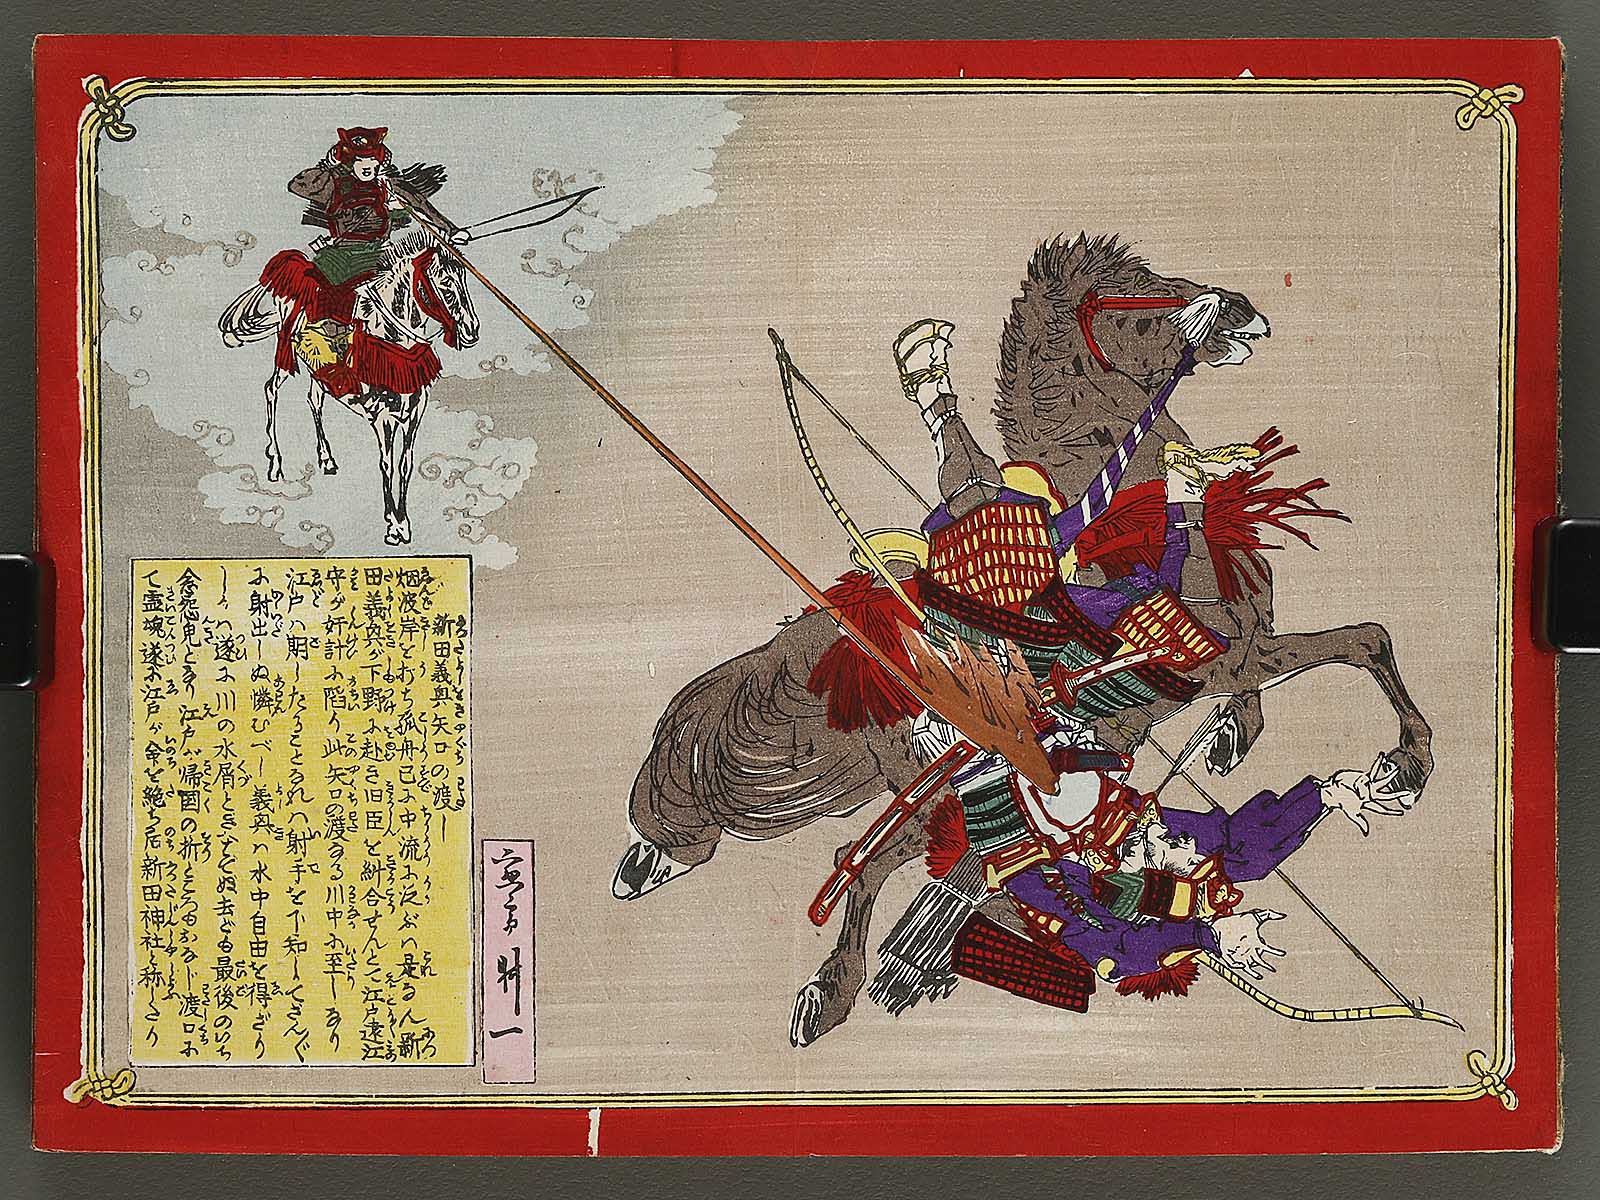 新田義興矢口の渡し
烟波岸を打ち孤舟已に中流に泛ぶハ是なん新
田義興が下野に赴き旧臣を糾合せんとて江戸遠江
守が奸計に陥り此矢口の渡なる川中に至しなり
江戸ハ期したることなれハ射手を下知してさんざん
に射出しぬ憐むべし義興ハ水中自由を得ざり
しかハ遂に川の水屑と
ぬ去ども最後のいち
念怨鬼となり江戸が帰国の折
渡口に
て霊魂遂に江戸が命を絶ち后新田神社と称したり